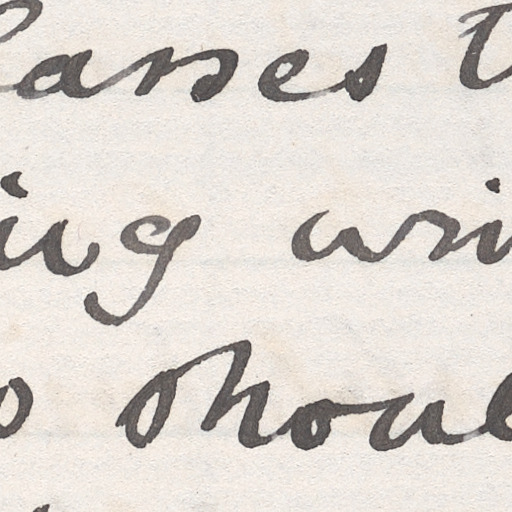 lasses t
ing wri
o shoul